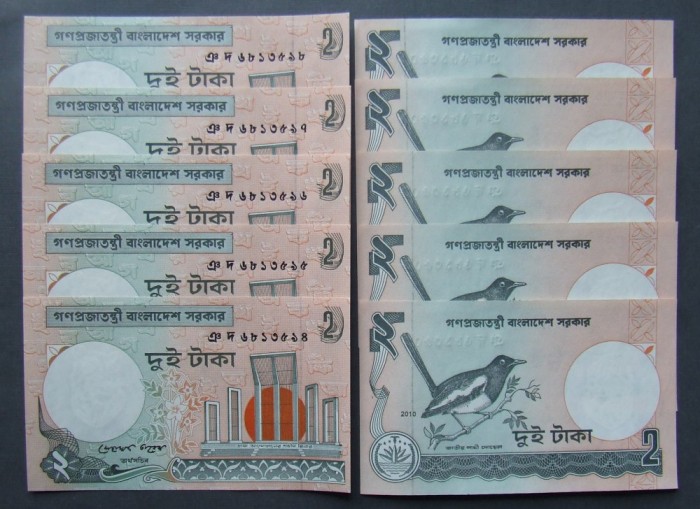 গণপ্রজাতন্ত্রী বাংলাদেশ সরকার
2
ঞ দ ৬৮১৩৫৯৮
দুই টাকা
গণপ্রজাতন্ত্রী বাংলাদেশ সরকার
2
ঞ দ ৬৮১৩৫৯৭
দুই টাকা
গণপ্রজাতন্ত্রী বাংলাদেশ সরকার
2
ঞ দ ৬৮১৩৫৯৬
দুই টাকা
গণপ্রজাতন্ত্রী বাংলাদেশ সরকার
2
ঞ দ ৬৮১৩৫৯৫
দুই টাকা
গণপ্রজাতন্ত্রী বাংলাদেশ সরকার
2
ঞ দ ৬৮১৩৫৯৪
দুই টাকা
অর্থসচিব
২
গণপ্রজাতন্ত্রী বাংলাদেশ সরকার
২
গণপ্রজাতন্ত্রী বাংলাদেশ সরকার
২
গণপ্রজাতন্ত্রী বাংলাদেশ সরকার
২
গণপ্রজাতন্ত্রী বাংলাদেশ সরকার
২
গণপ্রজাতন্ত্রী বাংলাদেশ সরকার
২
2010
জাতীয় পাখী দোয়েল
দুই টাকা
2